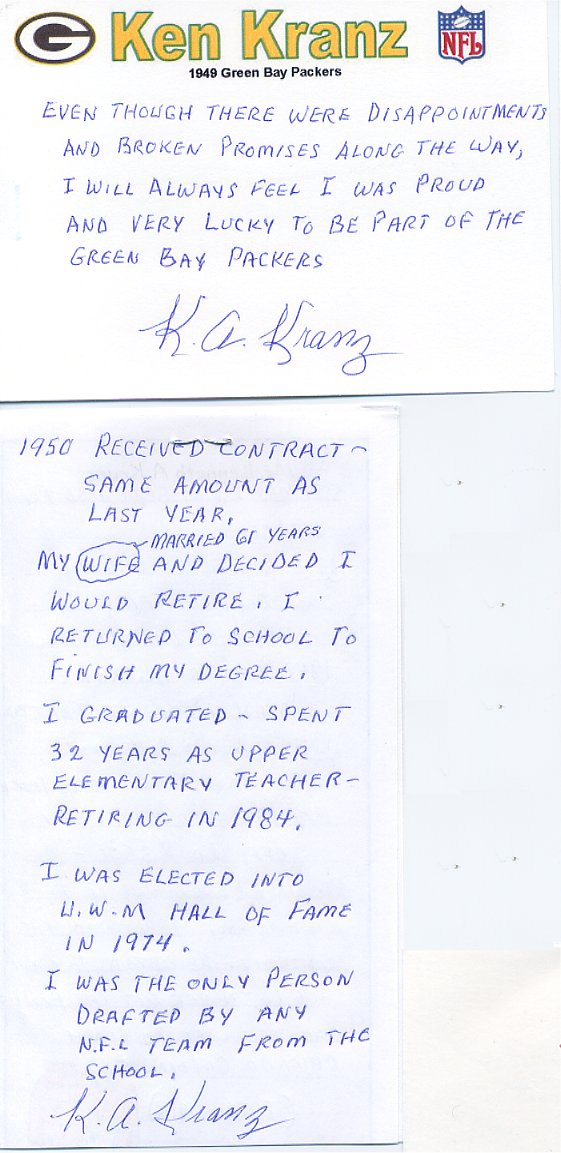 G Ken Kranz NFL
1949 Green Bay Packers
EVEN THOUGH THERE WERE DISAPPOINTMENTS
AND BROKEN PROMISES ALONG THE WAY,
I WILL ALWAYS FEEL I WAS PROUD
AND VERY LUCKY TO BE PART OF THE
GREEN BAY PACKERS
K. A. Kranz
1950 RECEIVED CONTRACT –
SAME AMOUNT AS
LAST YEAR,
MARRIED 61 YEARS
MY WIFE AND DECIDED I
WOULD RETIRE. I
RETURNED TO SCHOOL TO
FINISH MY DEGREE.
I GRADUATED – SPENT
32 YEARS AS UPPER
ELEMENTARY TEACHER –
RETIRING IN 1984.
I WAS ELECTED INTO
U.W-M HALL OF FAME
IN 1974.
I WAS THE ONLY PERSON
DRAFTED BY ANY
N.F.L TEAM FROM THE
SCHOOL.
K. A. Kranz